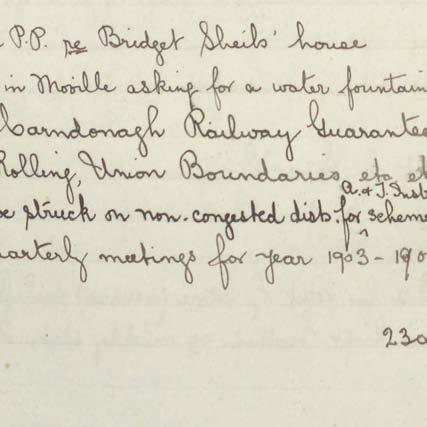 P.P. re Bridget Sheils' house
in Moville asking for a water fountain
Carndonagh Railway Guarantee
Rolling, Union Boundaries etc et
A. & T. Inst
struck on non-congested dists. for scheme
uarterly meetings for year 1903-190
230